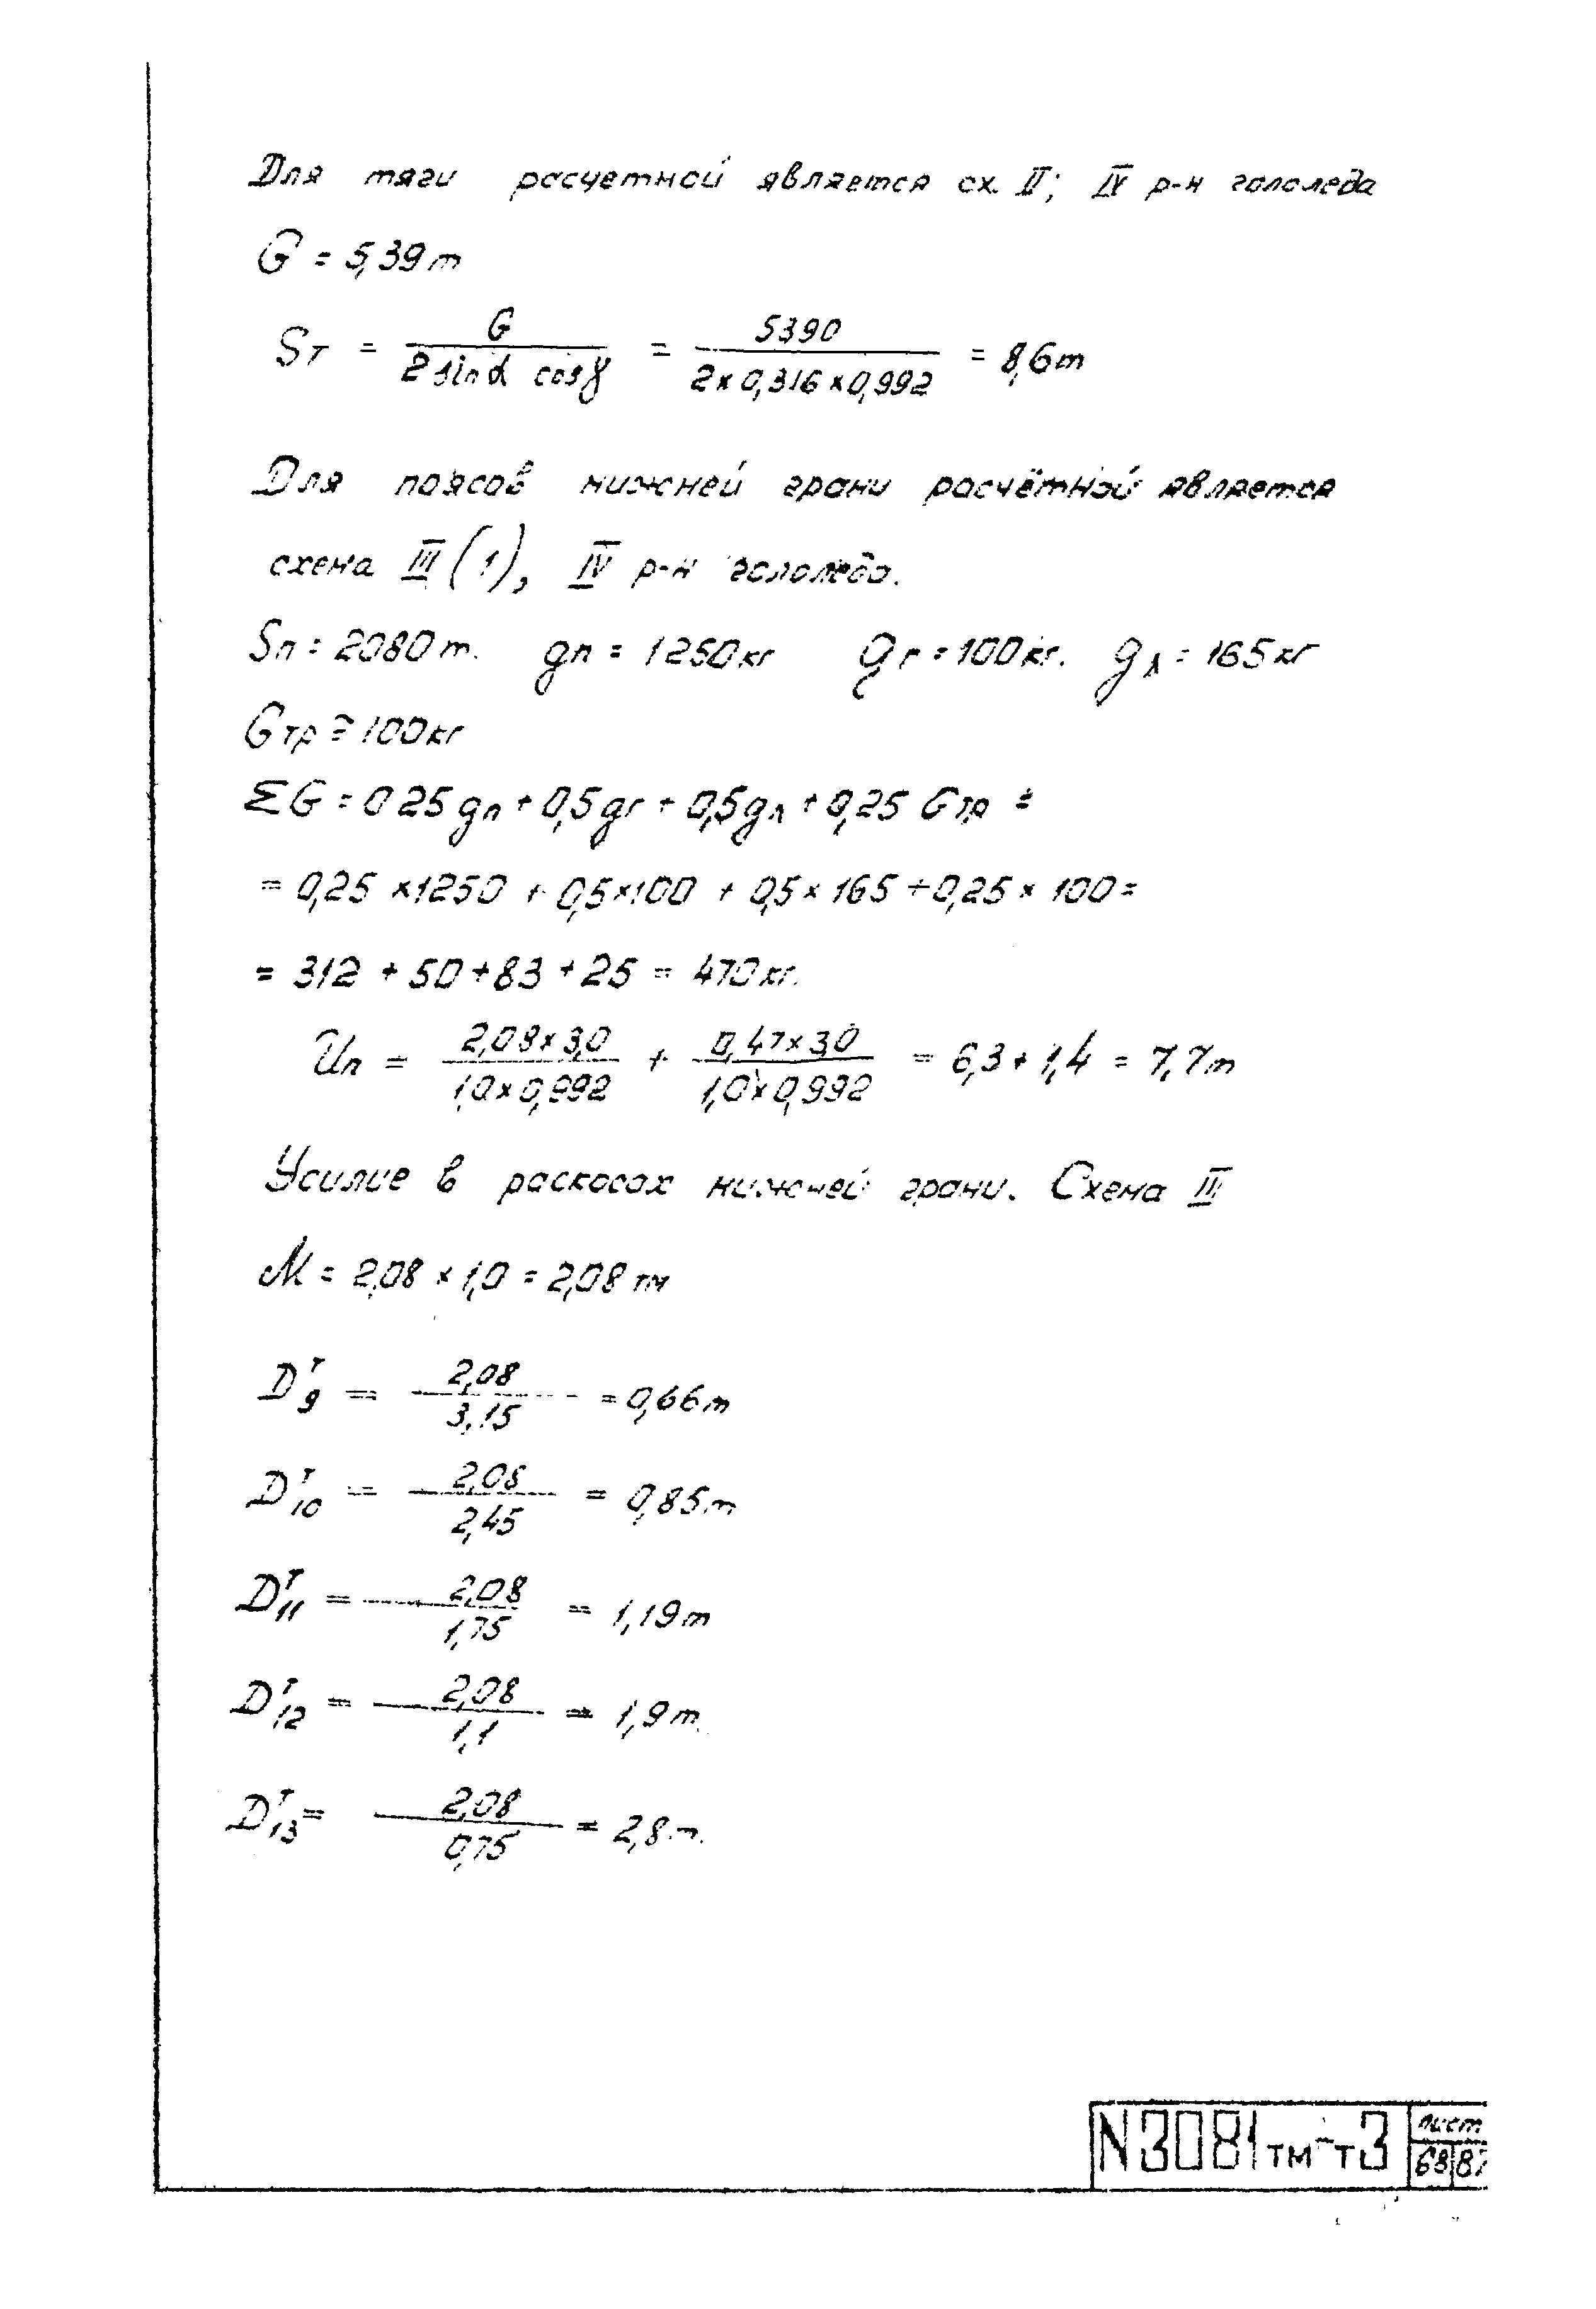 Для тяги расчетной является сх. II; IV р-н гололеда
G = 5,39 т
Sт = G / (2 sin α cos γ) = 5390 / (2 × 0,316 × 0,992) = 8,6 т
Для поясов нижней грани расчётной является
схема III (1), IV р-н гололеда.
Sп = 2080 т. gп = 1250 кг gг = 100 кг. gл = 165 кг
Gтр ≅ 100 кг
ΣG = 0 25 gп + 0,5 gг + 0,5 gл + 0,25 Gтр =
= 0,25 × 1250 + 0,5 × 100 + 0,5 × 165 + 0,25 × 100 =
= 312 + 50 + 83 + 25 = 470 кг.
Uп = 2,08 × 3,0 / 1,0 × 0,992 + 0,47 × 3,0 / 1,0 × 0,992 = 6,3 + 1,4 = 7,7 т
Усилие в раскосах нижней грани. Схема III
M = 2,08 × 1,0 = 2,08 тм
D₉ᵀ = 2,08 / 3,15 = 0,66 т
D₁₀ᵀ = 2,08 / 2,45 = 0,85 т
D₁₁ᵀ = 2,08 / 1,75 = 1,19 т
D₁₂ᵀ = 2,08 / 1,1 = 1,9 т.
D₁₃ᵀ = 2,08 / 0,75 = 2,8 т.
N3081тм-т3 лист
68 87